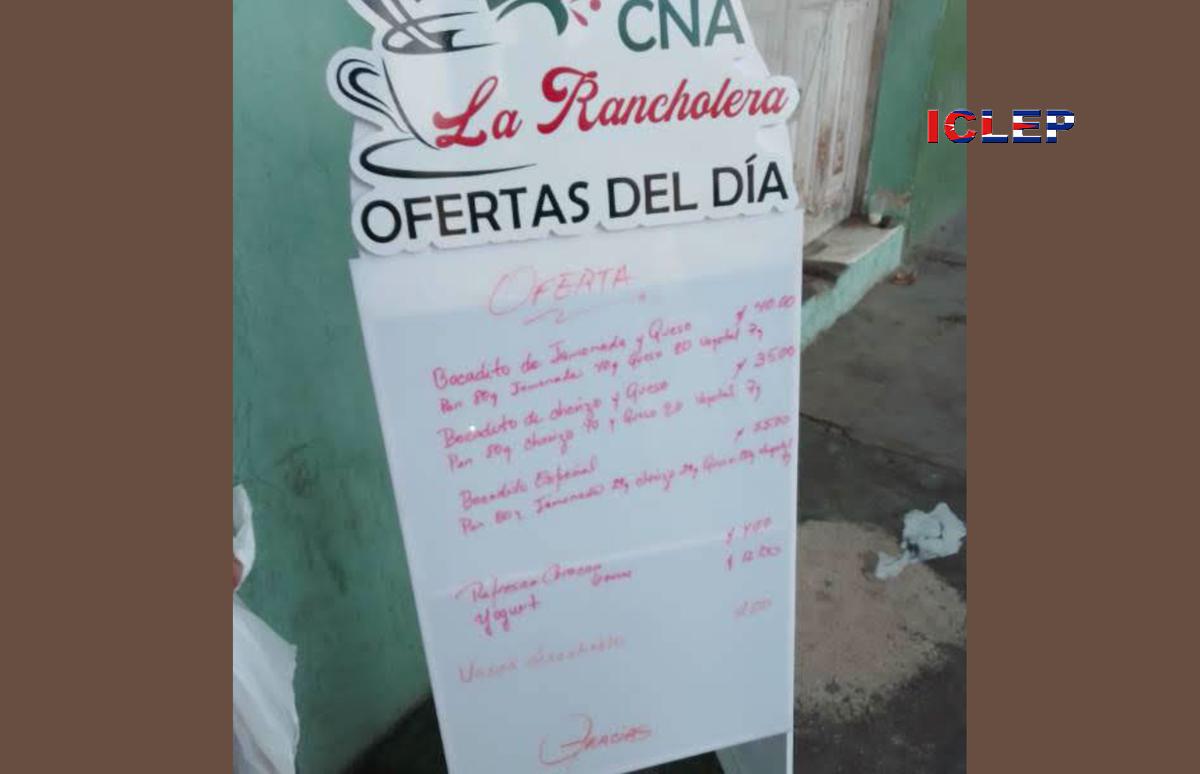 CNA
La Rancholera
ICLEP
OFERTAS DEL DÍA
OFERTA
Bocadito de Jamonada y Queso $ 40.00
Pan 80g Jamonada 40g Queso 20 Vegetal 7g
Bocadito de chorizo y Queso $ 35.00
Pan 80g chorizo 40 y Queso 20 Vegetal 7g
Bocadito Español
Pan 80g Jamonada chorizo Queso
Refresco $ 4.00
Yogurt $ 12.00
Vasos desechable 2.00
Gracias